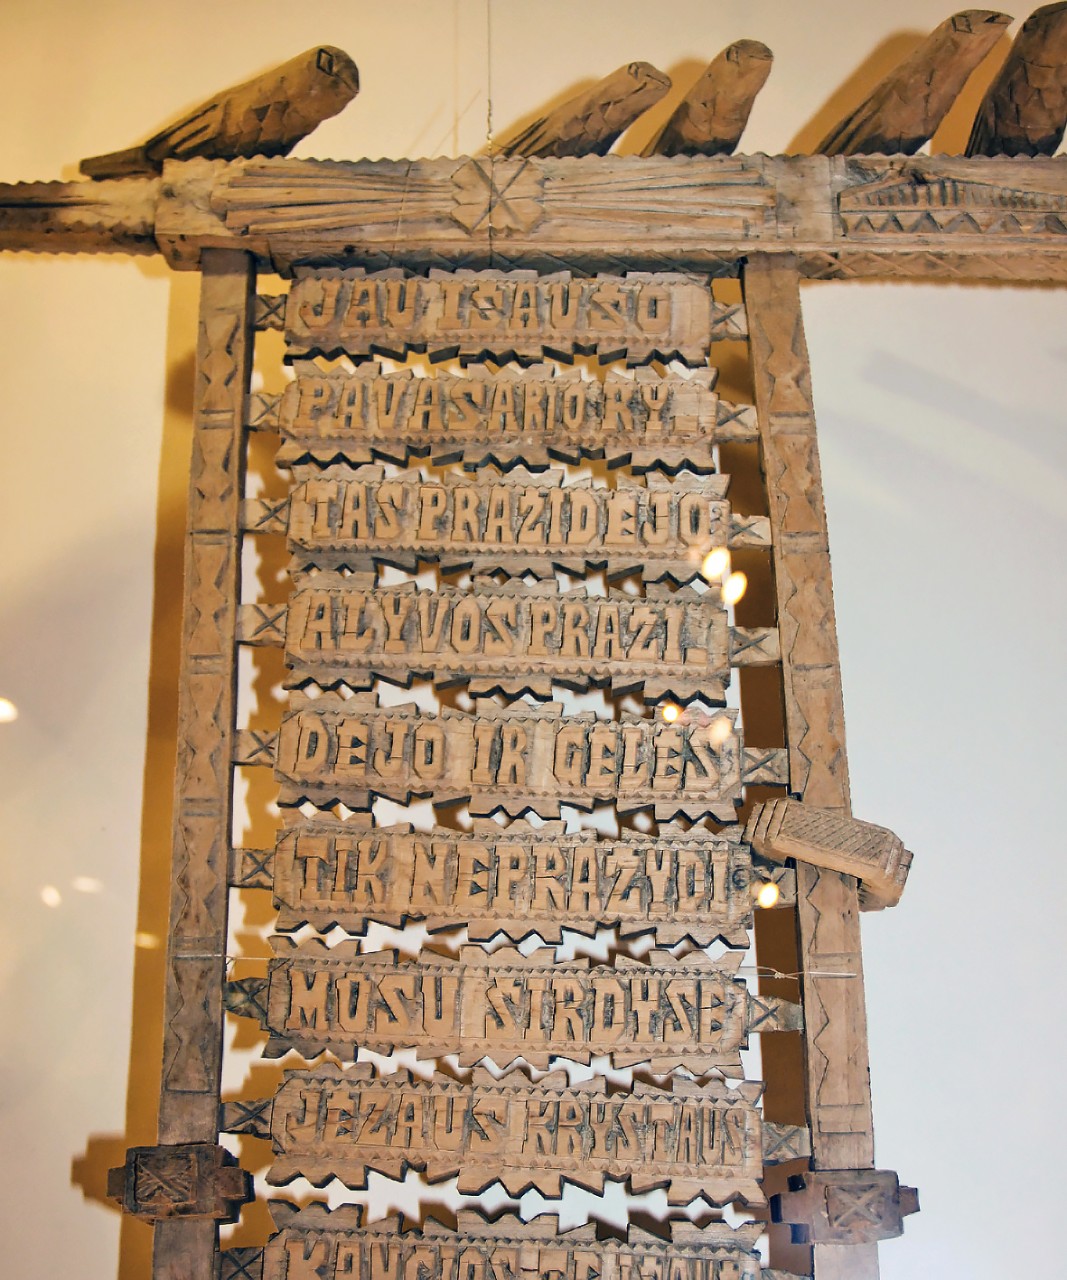 JAU IŠAUŠO
PAVASARIO RY
TAS PRAŽIDEJO
ALYVOS PRAŽI
DEJO IR GĖLĖS
TIK NEPRAŽYDI
MOSU ŠIRDYSE
JĖZAUS KRYSTAUS